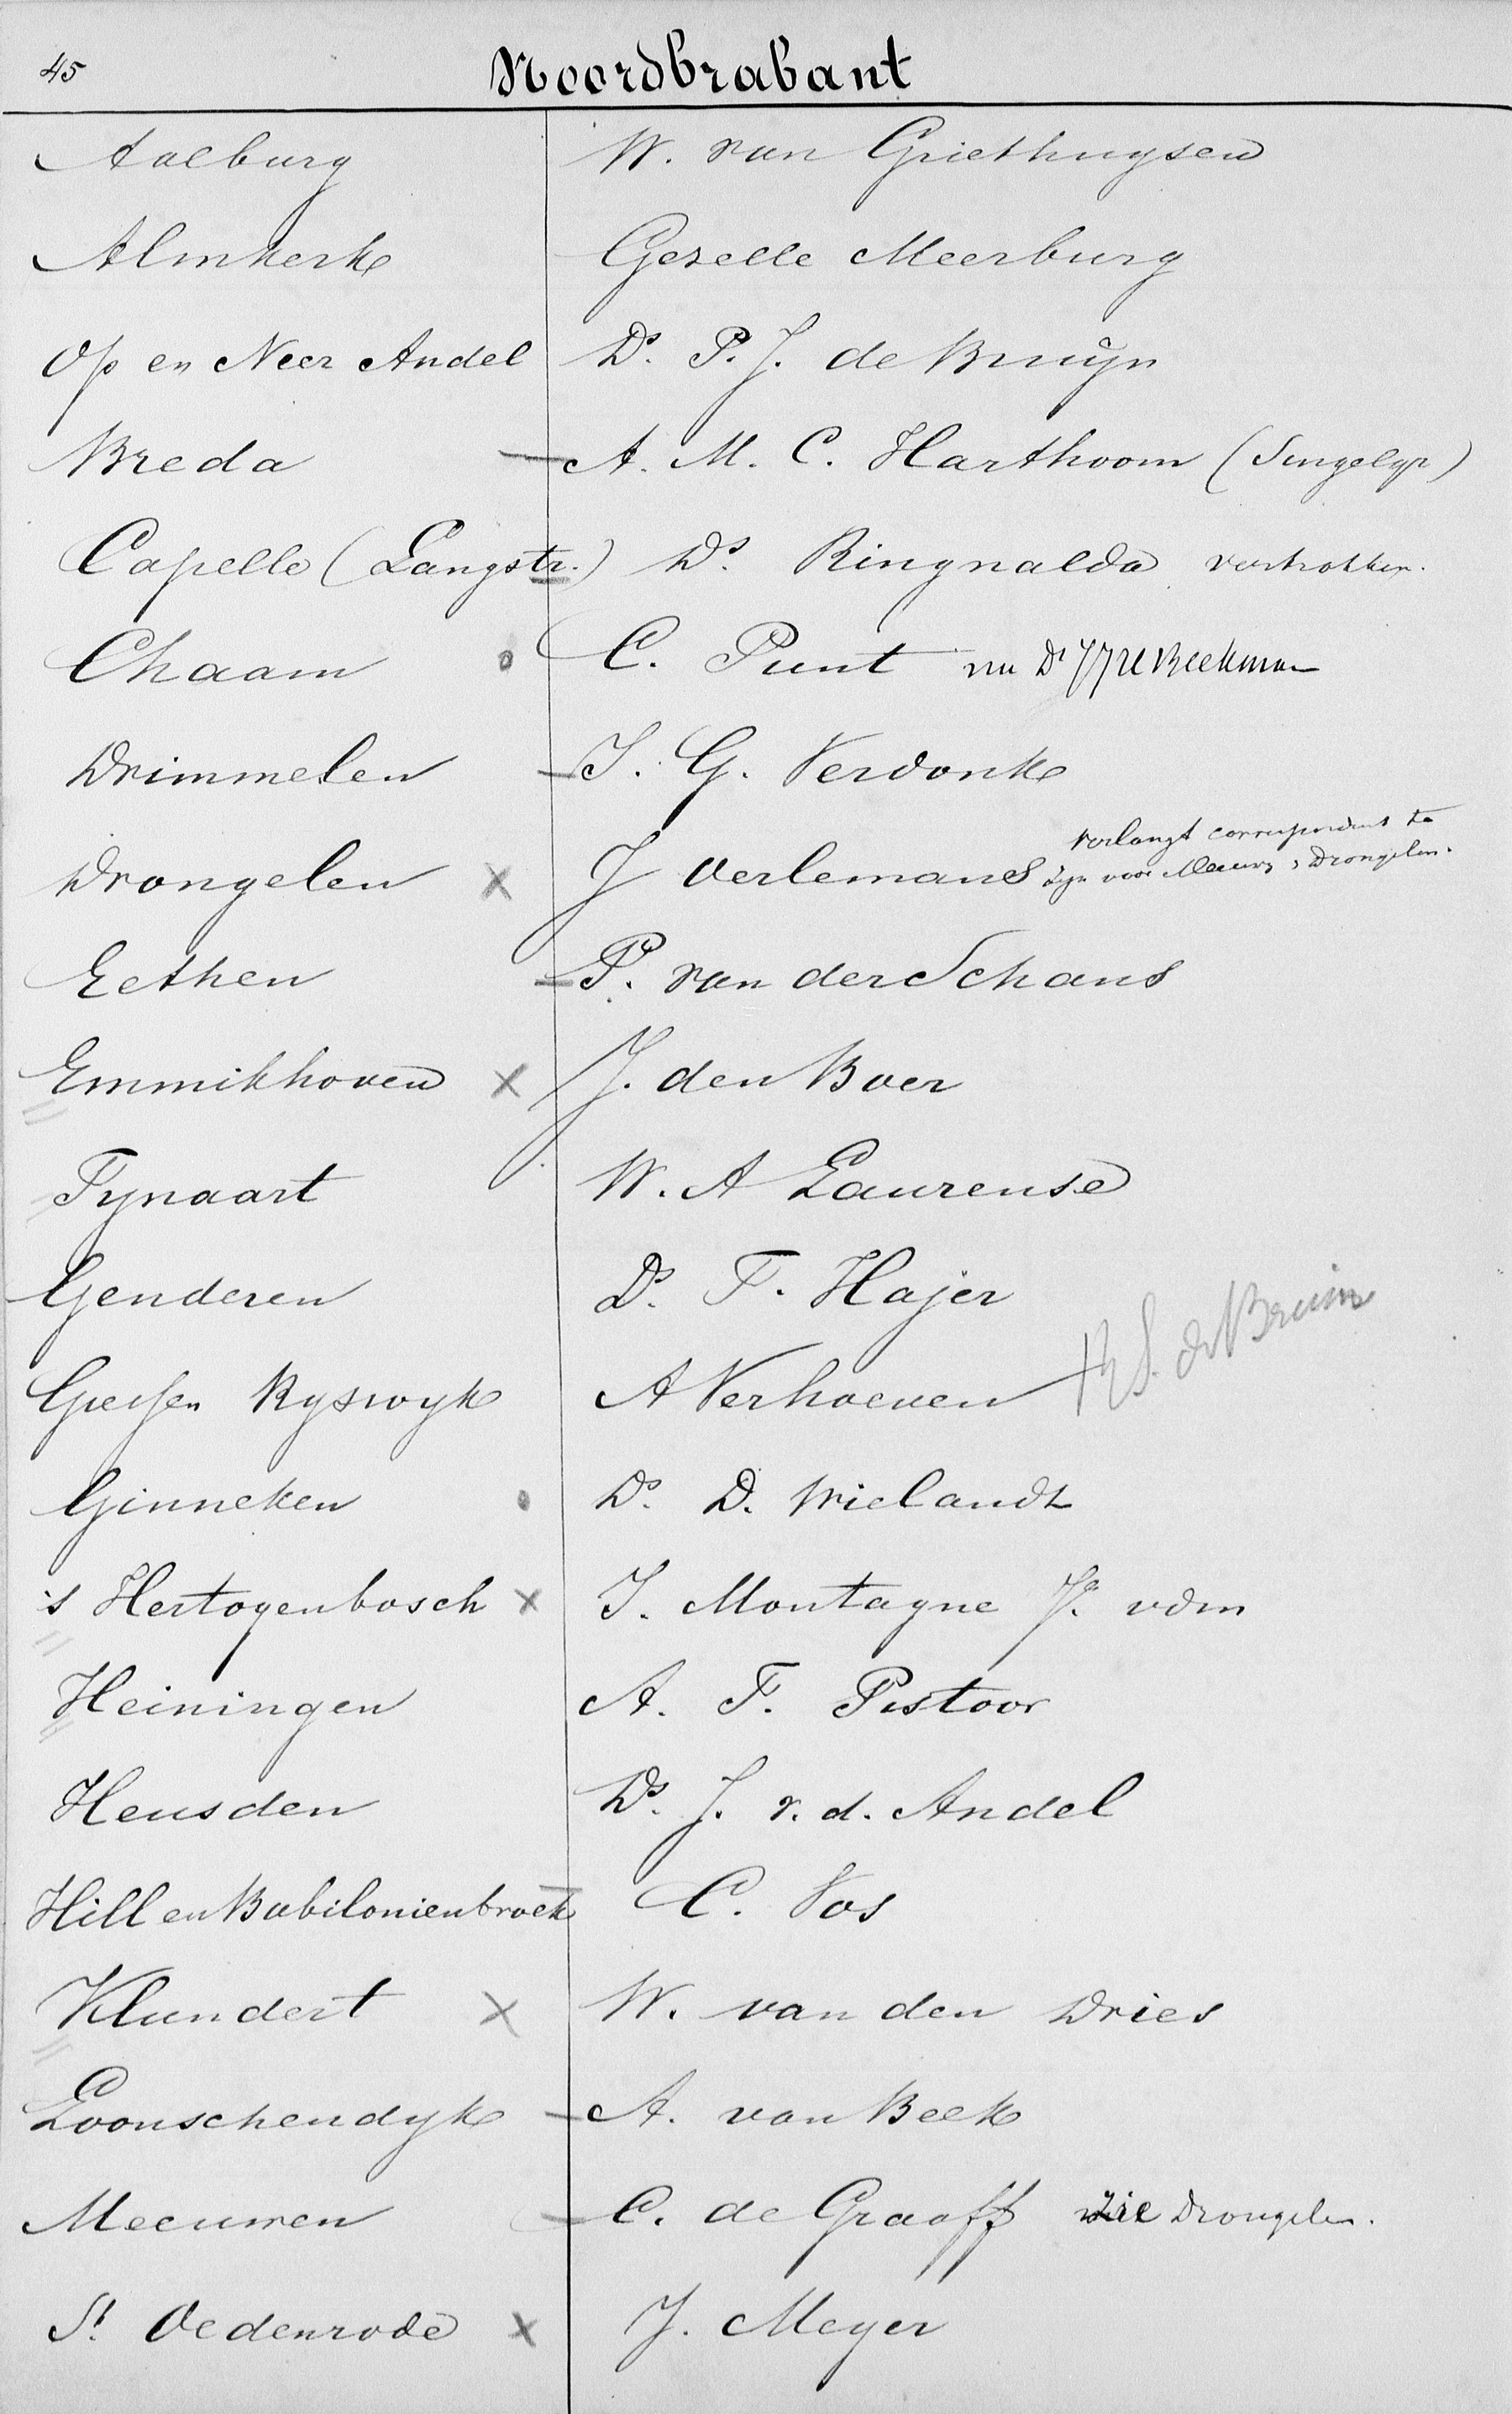 45 Noordbrabant
Aalburg W. van Griethuysen
Almkerk Gezelle Meerburg
Op en Neer Andel Ds. P. J. de Bruijn
Breda A. M. C. Harthoorn (Singelgr)
Capelle (Langstr.) Ds. Ringnalda vertrokken.
Chaam C. Punt nu Ds Beekman
Drimmelen J. G. Verdonk
verlangt correspondent te
Drongelen x J Verlemans zyn voor Meeuw, Drongelen.
Eethen P. van der Schans
Emmikhoven x J. den Boer
Fynaart W. A Laurense
Genderen Ds. F. Hajer
Giessen Ryswyk A Verhoeven S. de Bruin
Ginneken Ds. D. Wielandt
's Hertogenbosch x J. Montagne Jr. vdm
Heiningen A. F. Pistoor
Heusden Ds. J. v. d. Andel
Hill en Babilonienbroek C. Vos
Klundert x W. van den Dries
Loonschendyk A. van Beek
Meeuwen C. de Graaff zie Drongelen.
St. Oedenrode x J. Meyer